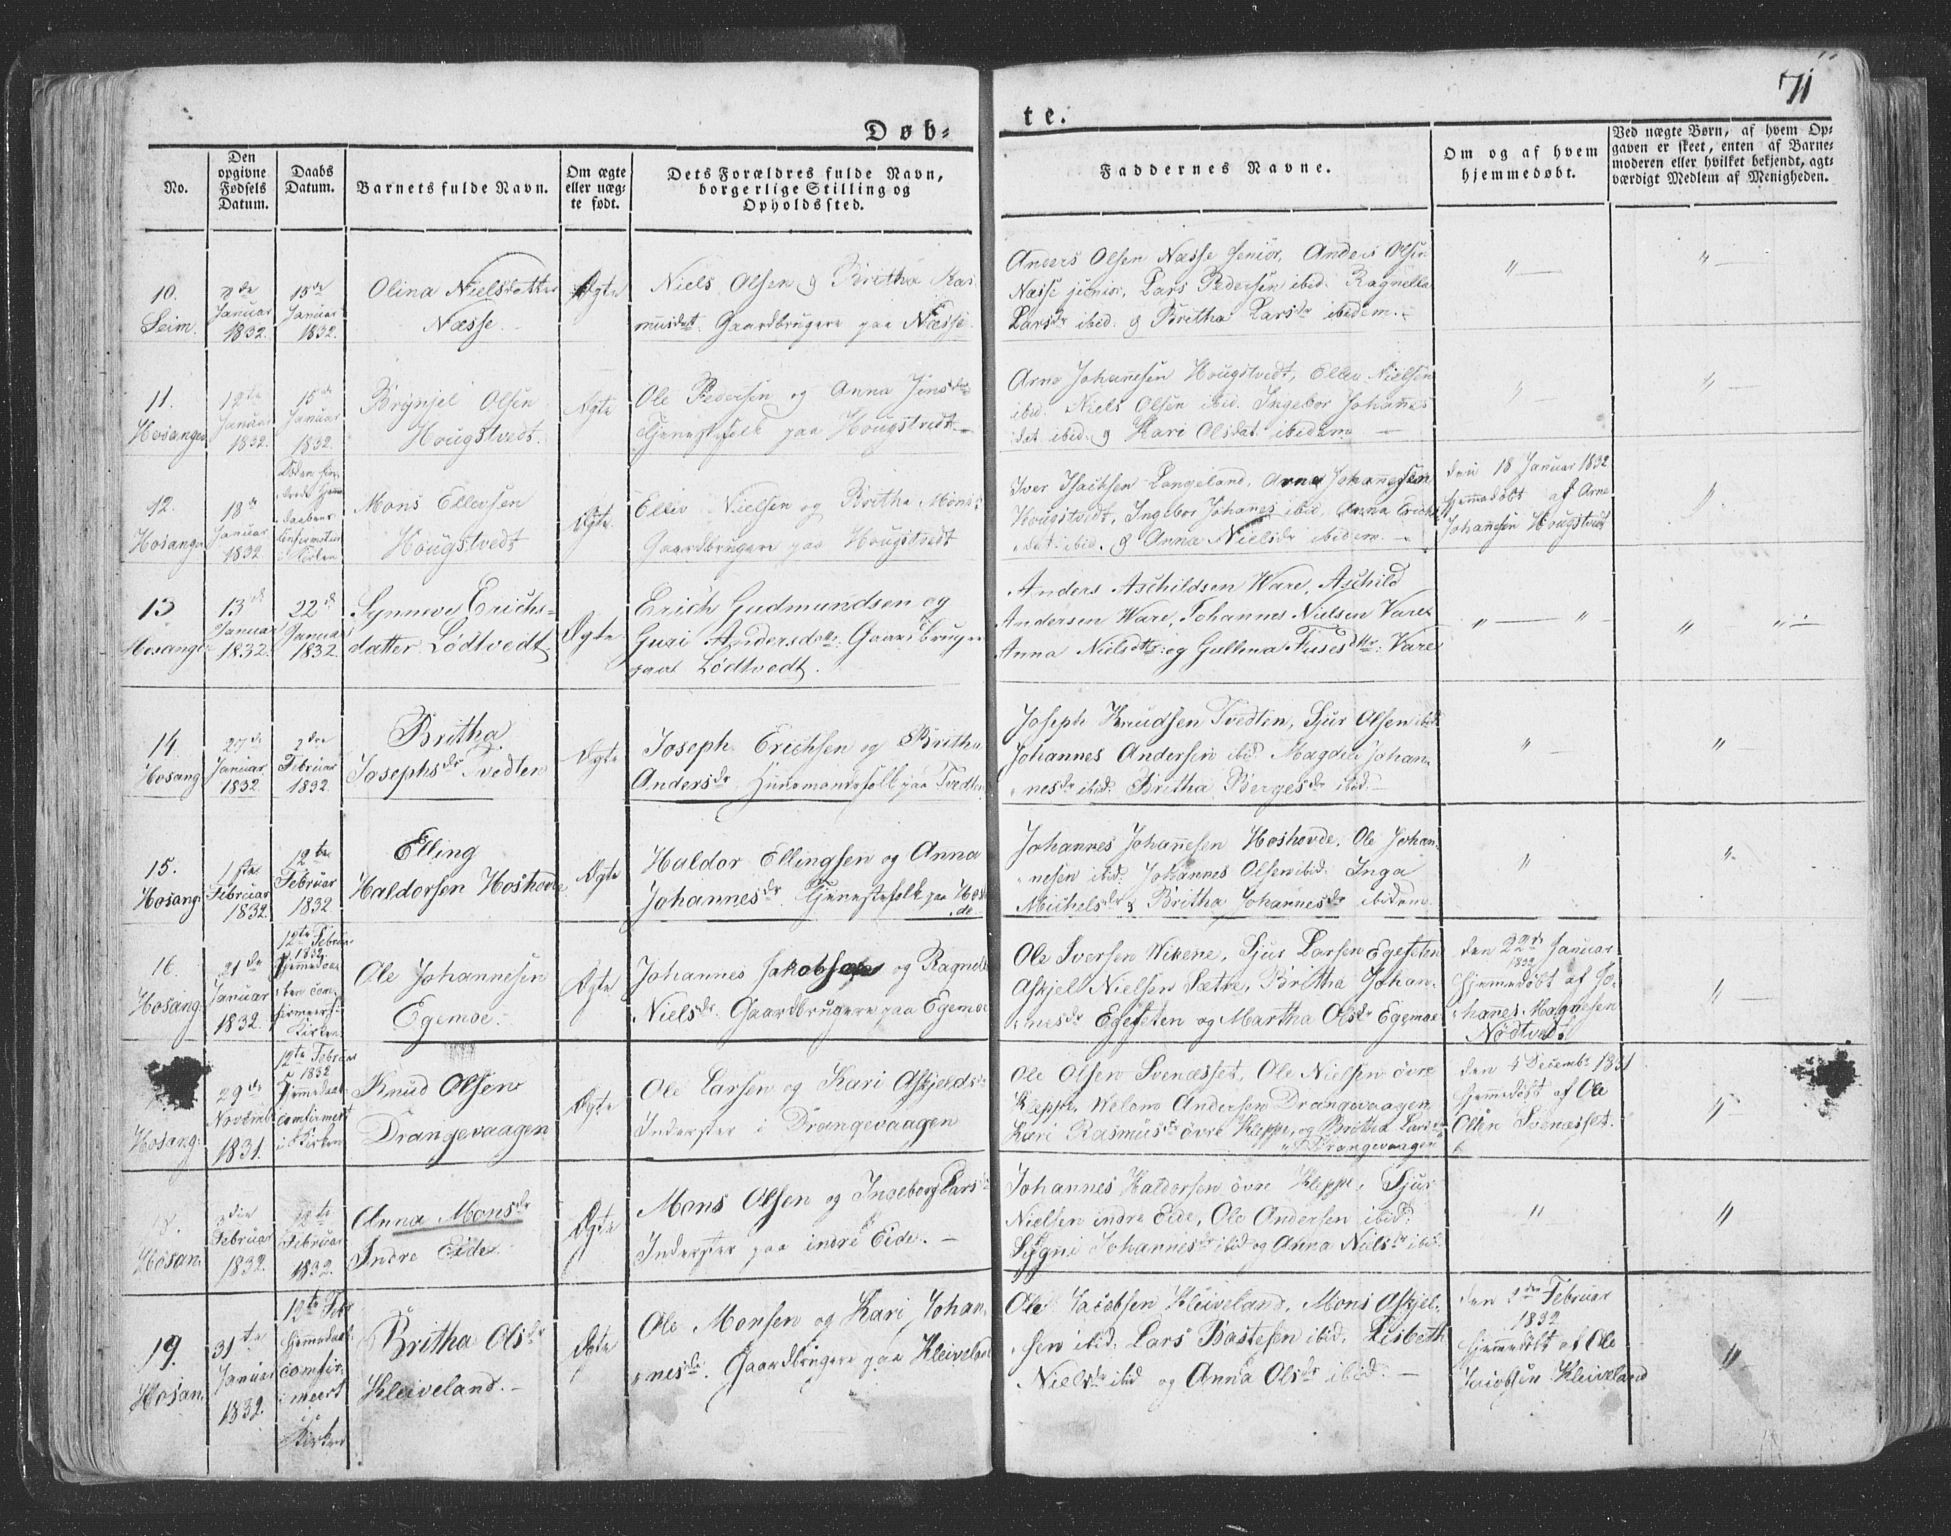 71
Døb-
te.
No.
Den opgivne Fødsels Datum.
Daabs Datum.
Barnets fulde Navn.
Om ægte eller uæg- te født.
Dets Forældres fulde Navn, borgerlige Stilling og Opholdssted.
Faddernes Navne.
Om og af hvem hjemmedøbt.
Ved uægte Børn, af hvem Op- gaven er skeet, enten af Barne- moderen eller hvilket bekjendt, agt- værdigt Medlem af Menigheden.
10.
Seim.
Januar
1832.
15de
Januar
1832.
Olina Nielsdatter
Næsse.
Ægte
Niels Olsen & Britha Ras
musdat. Gaardbrugere paa Næsse.
Anders Olsen Næsse senior, Anders Olsen
Næsse junior, Lars Pedersen ibid. Ragnilla
Larsdr ibid. & Britha Larsdr ibidem.
11.
Hosanger
Januar
1832.
15de
Januar
1832.
Brynjel Olsen
Hougstvedt.
Ægte
Ole Pedersen og Anna Jens
Tjenestefolk paa Hougstvedt
Arne Johannesen Hougstvedt, Ellev Nielsen
ibid. Niels Olsen ibid. Ingebor Johannes
dat ibid. & Kari Olsdat. ibidem
12.
Hosanger
18de
Januar
1832.
i Kirken
Mons Ellevsen
Hougstvedt
Ægte
Ellev Nielsen og Britha Mons
Gaardbrugere paa Hougstvedt
Iver Isacksen Langeland, Arne Johannesen
Hougstvedt, Ingebor Johanes ibid. Anna Erichs
dat. ibid. & Anna Nielsdr ibidem.
den 18 Januar 1832
Hjemmedøbt af Arne
Johannesen Hougstvedt
13
Hosanger
13de
Januar
1832.
22de
Januar
1832.
Synneve Erichs-
datter Lødtvedt
Ægte
Erich Gudmundsen og
Guri Andersdtr: Gaardbrugere
paa Lødtvedt.
Anders Aschildsen Ware, Aschild
Andersen Ware, Johannes Nielsen Vare
Anna Nielsdtr: og Gullena Fusesdtr: Vare
14
Hosang
27de
Januar
1832
2den
Februar
1832.
Britha
Josephsdr Tvedten
Ægte
Joseph Erichsen og Britha
Andersdr Huusmandsfolk paa Tvedten
Joseph Knudsen Tvedten, Sjur Olsen ibid
Johannes Andersen ibid Magdeli Johan-
nesdr ibid. Britha Bergesdr ibid.
15.
Hosang:
1ste
Februar
1832.
12te
Februar
1832
Elling
Haldorsen Hoshovde
Ægte
Haldor Ellingsen og Anna
Johannesdr. Tjenestefolk paa Hos
de
Johannes Johannesen Hoshovde, Ole Johan-
nesen ibid: Johannes Olsen ibid: Inga
Michelsdr & Britha Johannesdr ibidem
16
Hosang:
21de
Januar
1832.
12te Februar
1832
Hjemmedaa-
ben com-
firmeert i
Kirken
Ole Johannesen
Egemoe.
Ægte
Johannes Jakobsen og Ragnele
Nielsdr. Gaardbrugere paa Egemoe
Ole Iversen Wikene, Sjur Larsen Egeseten
Askjel Nielsen Sætre, Britha Johan-
nesdr Egeseten og Martha Olsdr Egemoe
den 22de Januar
1832
Hjemmedøbt af Jo-
hannes Magnesen
Nødtvedt.
Hosang:
29de
Novemb
1831.
12te Februar
1832
Hjemmedaab
comfirmeert
i Kirken
Knud Olsen
Drangevaagen
Ægte
Ole Larsen og Kari Askjelds
Inderster i Drangevaagen
Ole Olsen Svenæsset, Ole Nielsen övre
Kleppe, Welom Andersen Drangevaagen
Kari Rasmusdr övre Kleppe, og Britha Larsdr
Drangevaagen
den 4 Decembr 1831
Hjemmedøbt af Ole
Olsen Svenæsset.
Hosan:
Februar
1832.
12te
Februar
1832.
Anna Monsdr
Indre Eide
Ægte
Mons Olsen og Ingeborg Lars
Inderster paa indre Eide.
Johannes Haldorsen övre Kleppe, Sjur
Nielsen indre Eide, Ole Andersen ibid:
Sygni Johannesdr ibid og Anna Nielsdr ibid.
19.
Hosan:
31te
Januar
1832.
12te Febr
Hjemmedaab
comfir-
meert
i
Kirken
Britha Olsdr
Kleiveland.
Ægte
Ole Monsen og Kari Johan-
nesdr. Gaardbrugere paa Kleiveland
Ole Jacobsen Kleiveland, Mons Askjel-
sen ibid: Lars Bastesen ibid. Lisbeth
Nielsdr ibid og Anna Olsdr ibid.
den 2den Februar
1832
Hjemmedøbt af Ole
Jacobsen Kleiveland